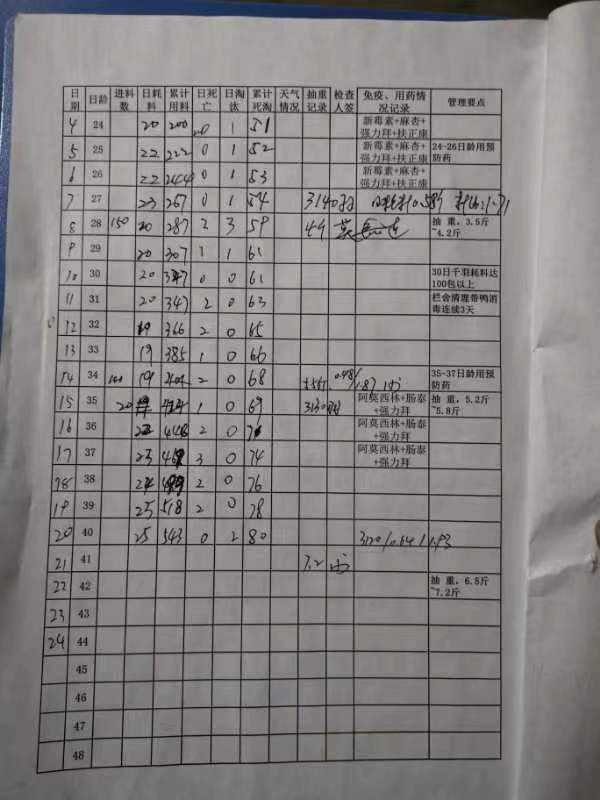 日期 日龄 进料数 日耗料 累计用料 日死亡 日淘汰 累计死淘 天气情况 抽重记录 检查人签 免疫、用药情况记录 管理要点
4 24 20 200 0 1 51 新霉素+麻杏+强力拜+扶正康
5 25 22 222 0 1 52 新霉素+麻杏+强力拜+扶正康 24-26日龄用预防药
6 26 22 244 0 1 53 新霉素+麻杏+强力拜+扶正康
7 27 23 267 0 1 54 3140羽
8 28 150 20 287 2 3 59 4斤 抽 重，3.5斤~4.2斤
9 29 20 307 1 1 61
10 30 20 0 0 61 30日千羽耗料达100包以上
11 31 20 347 2 0 63 栏舍清理带鸭消毒连续3天
12 32 19 366 2 0 65
13 33 19 385 1 0 66
14 34 19 2 0 68 35-37日龄用预防药
15 35 20 1 0 69 3130羽 阿莫西林+肠泰+强力拜 抽 重，5.2斤~5.8斤
16 36 2 0 阿莫西林+肠泰+强力拜
17 37 23 3 0 74 阿莫西林+肠泰+强力拜
18 38 2 0 76
19 39 25 518 2 0 78
20 40 25 543 0 2 80
21 41 7.2斤
22 42 抽 重，6.8斤~7.2斤
23 43
24 44
45
46
47
48